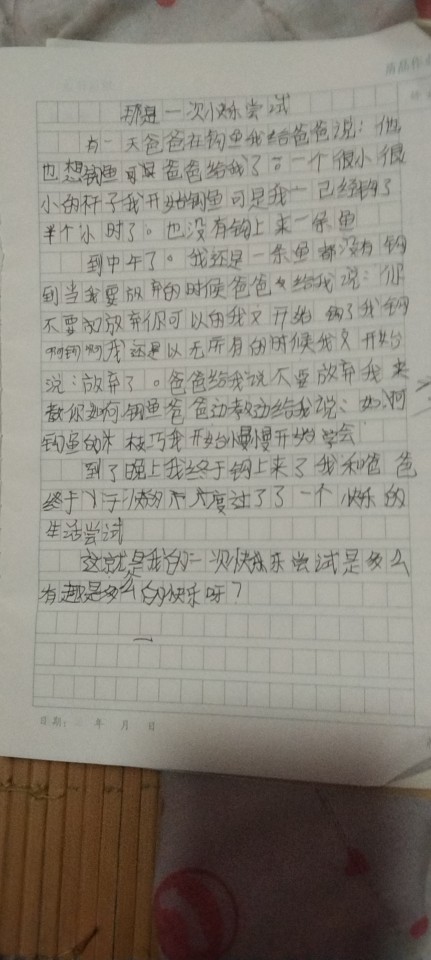 那是一次小快乐尝试
有一天爸爸在钓鱼我给爸爸说：他
也想钓鱼可是爸爸给我了一个很小很
小的杆子我开始钓鱼可是我一已经钓了
半个小时了。也没有钓上来一条鱼
到中午了。我还是一条鱼都没有钓
到当我要放弃的时候爸爸又给我说：你
不要放弃你可以的我又开始钓了我钓
啊钓啊我还是以无所有的时候我又开始
说：放弃了。爸爸给我说不要放弃我来
教你如何钓鱼爸爸边教边给我说：如何
钓鱼的技巧我开始慢慢开始学会
到了晚上我终于钓上来了我和爸爸
终于度过了了一个快乐的
生活尝试
这就是我的一次快乐尝试是多么
有趣是多么的快乐呀？
日期： 年 月 日